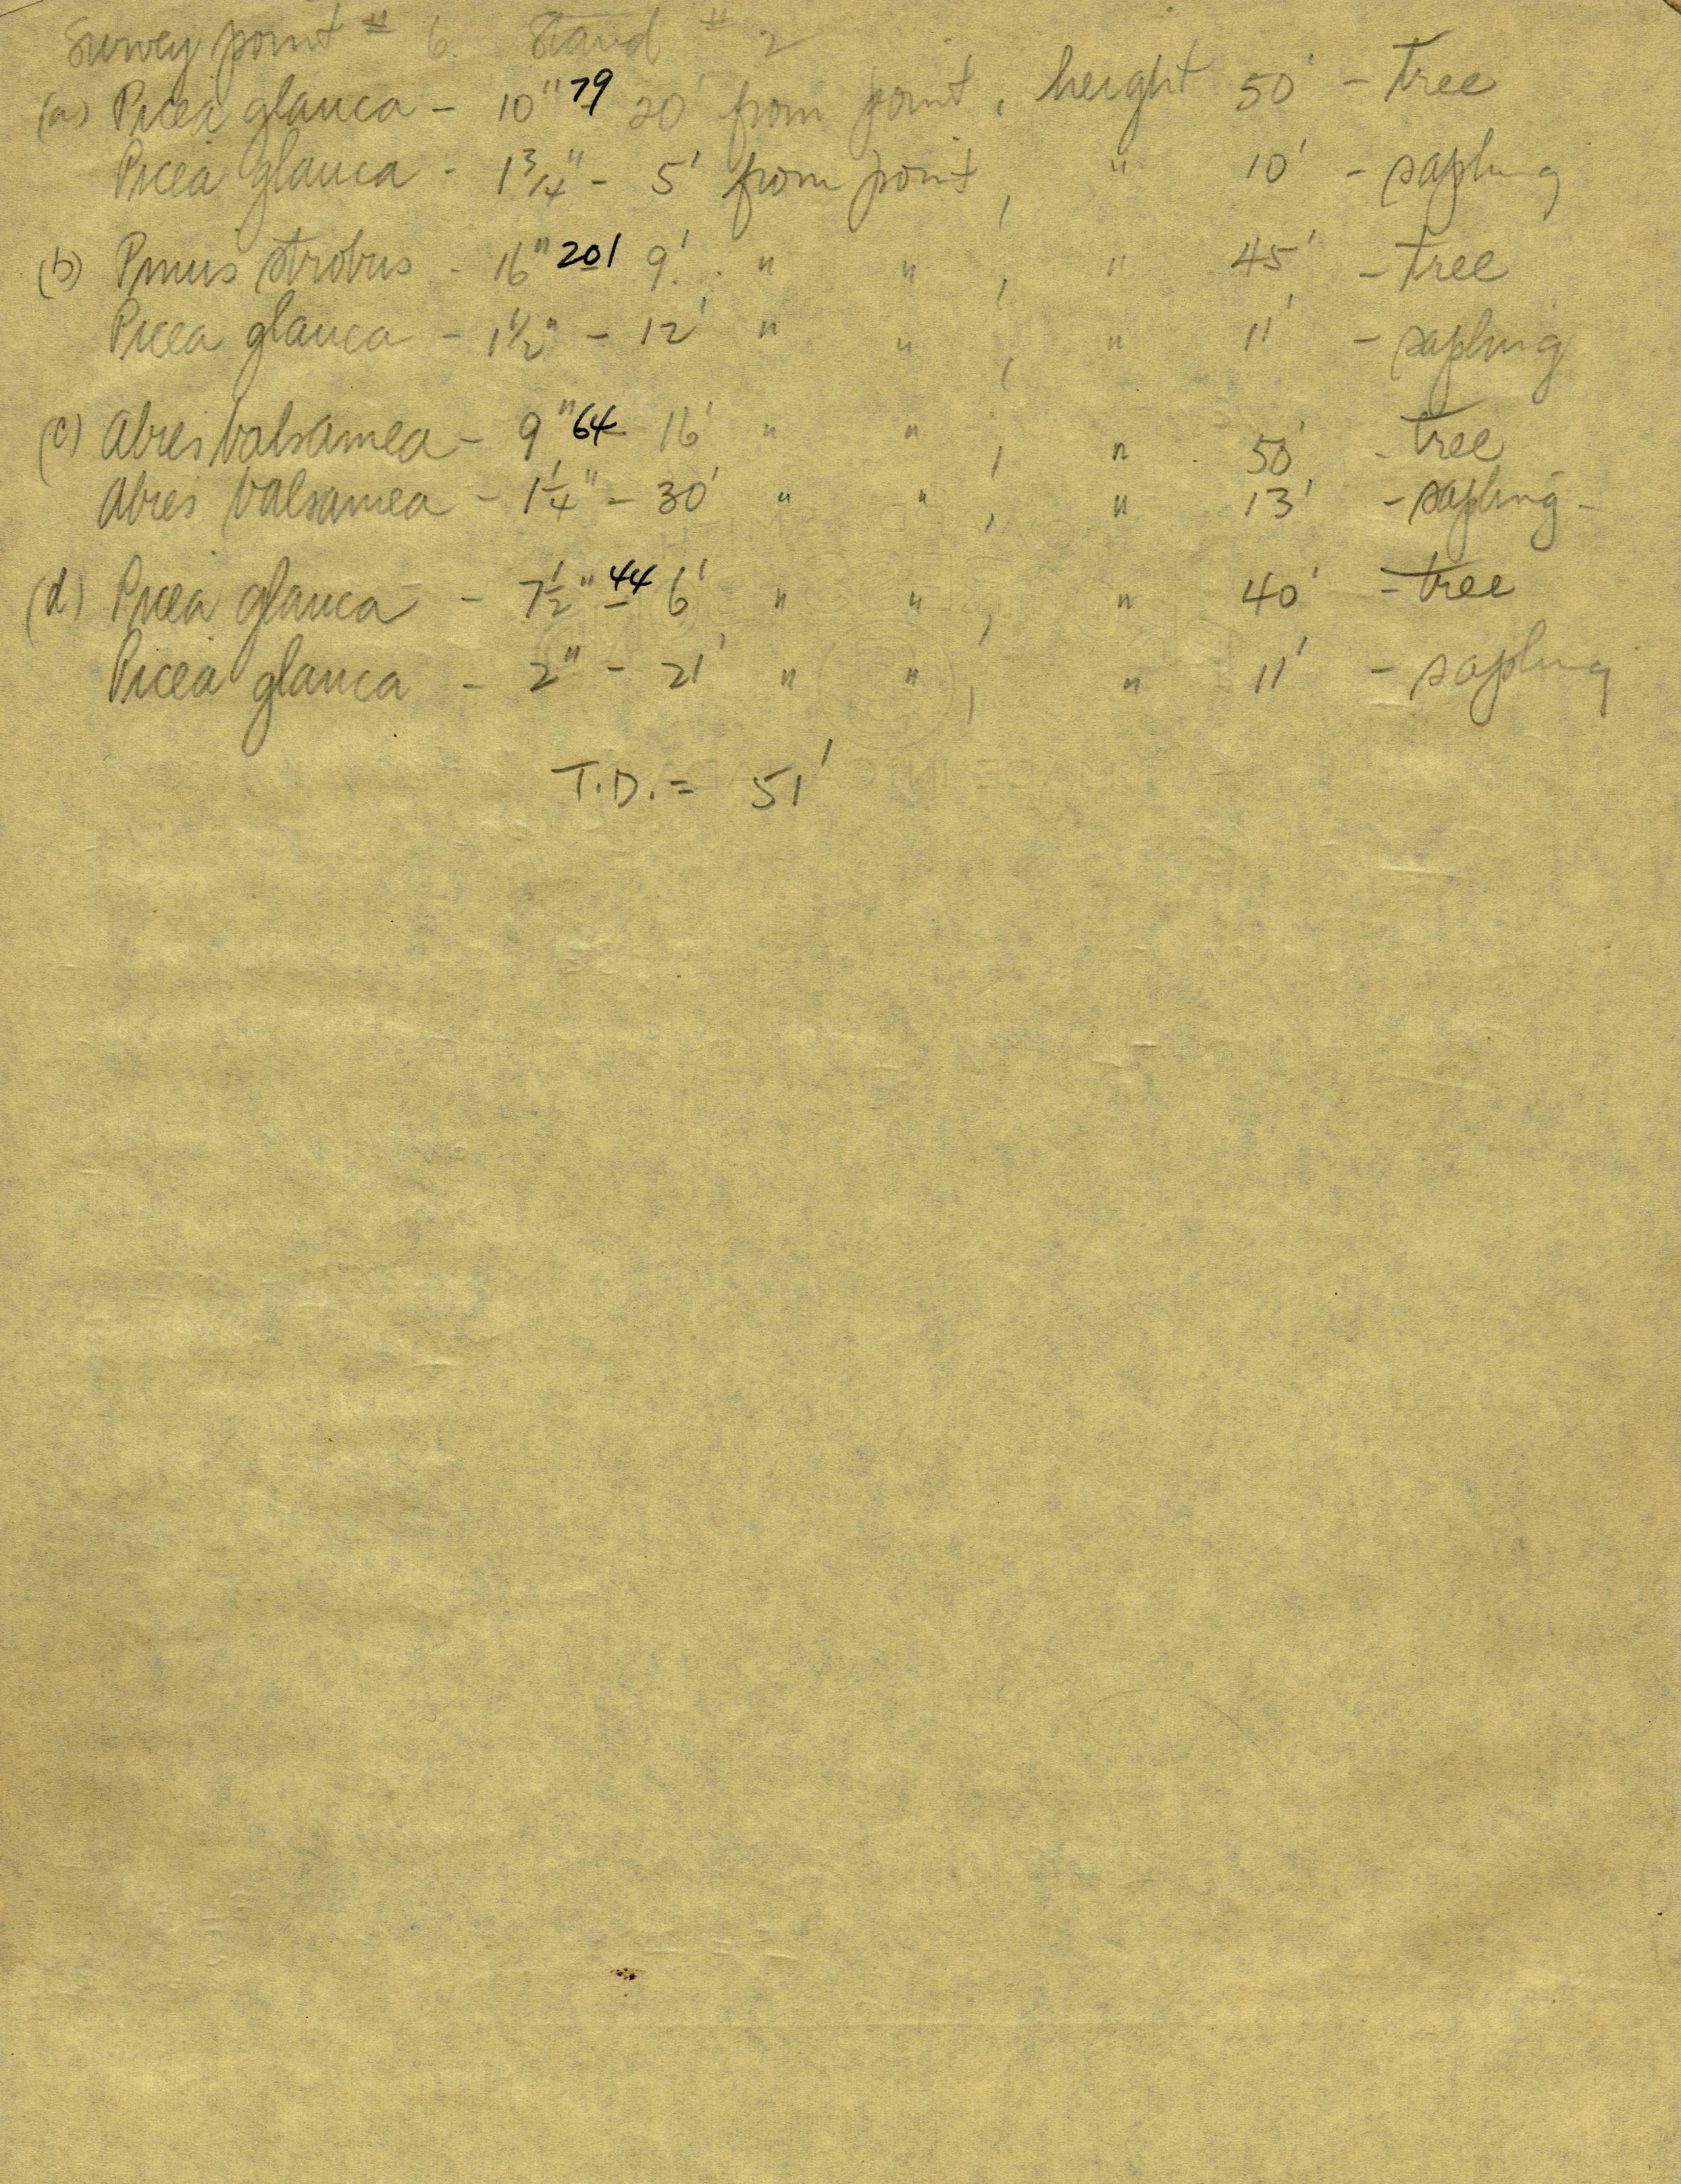 Survey point # 6. Stand # 2
(a) Picea glauca - 10" 79 20' from point, height 50' - tree
Picea glauca - 1 3/4" - 5' from point, " 10' - sapling
(b) Pinus strobus - 16" 201 9' " ", " 45' - tree
Picea glauca - 1 1/2" - 12' " ", " 11' - sapling
(c) Abies balsamea - 9" 64 16' " ", " 50' - tree
Abies balsamea - 1 1/4" - 30' " ", " 13' - sapling -
(d) Picea glauca - 7 1/2" 44 6' " ", " 40' - tree
Picea glauca - 2" - 21' " ", " 11' - sapling
T.D. = 51'